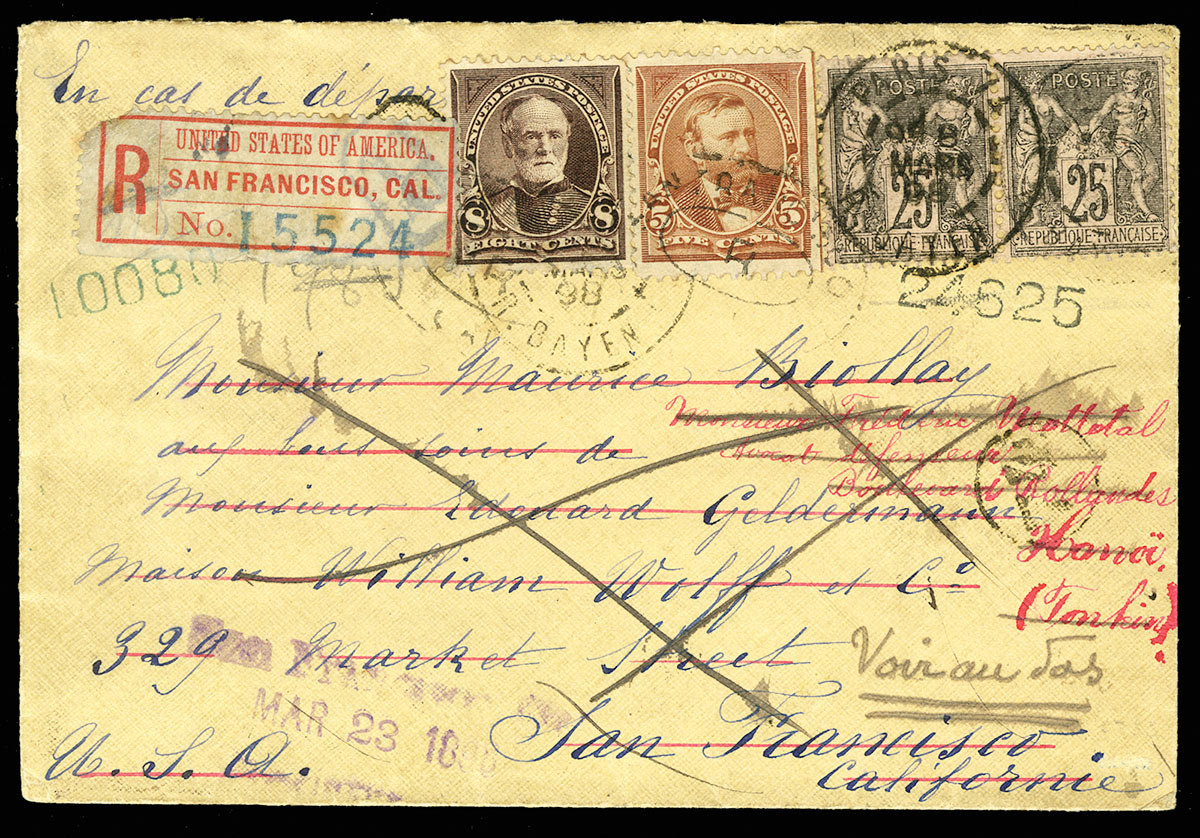 En cas de dépar
R
UNITED STATES OF AMERICA.
SAN FRANCISCO, CAL.
No. 15524
UNITED STATES POSTAGE
8 8
EIGHT CENTS
UNITED STATES POSTAGE
5 5
FIVE CENTS
84
POSTE
25
REPUBLIQUE FRANÇAISE
PARIS
MARS
POSTE
25
REPUBLIQUE FRANÇAISE
10080
24625
98
BAYEN
Monsieur Maurice Biollay
Monsieur Frédéric Mottetal
aux bons soins de
Avocat défenseur
Boulevard Rollandes
Monsieur Edouard Geldermann
Hanoï,
Maison William Wolff et Cº
(Tonkin)
329 Market Street
Voir au dos
San
MAR 23 18
San Francisco.
U. S. A.
Californie